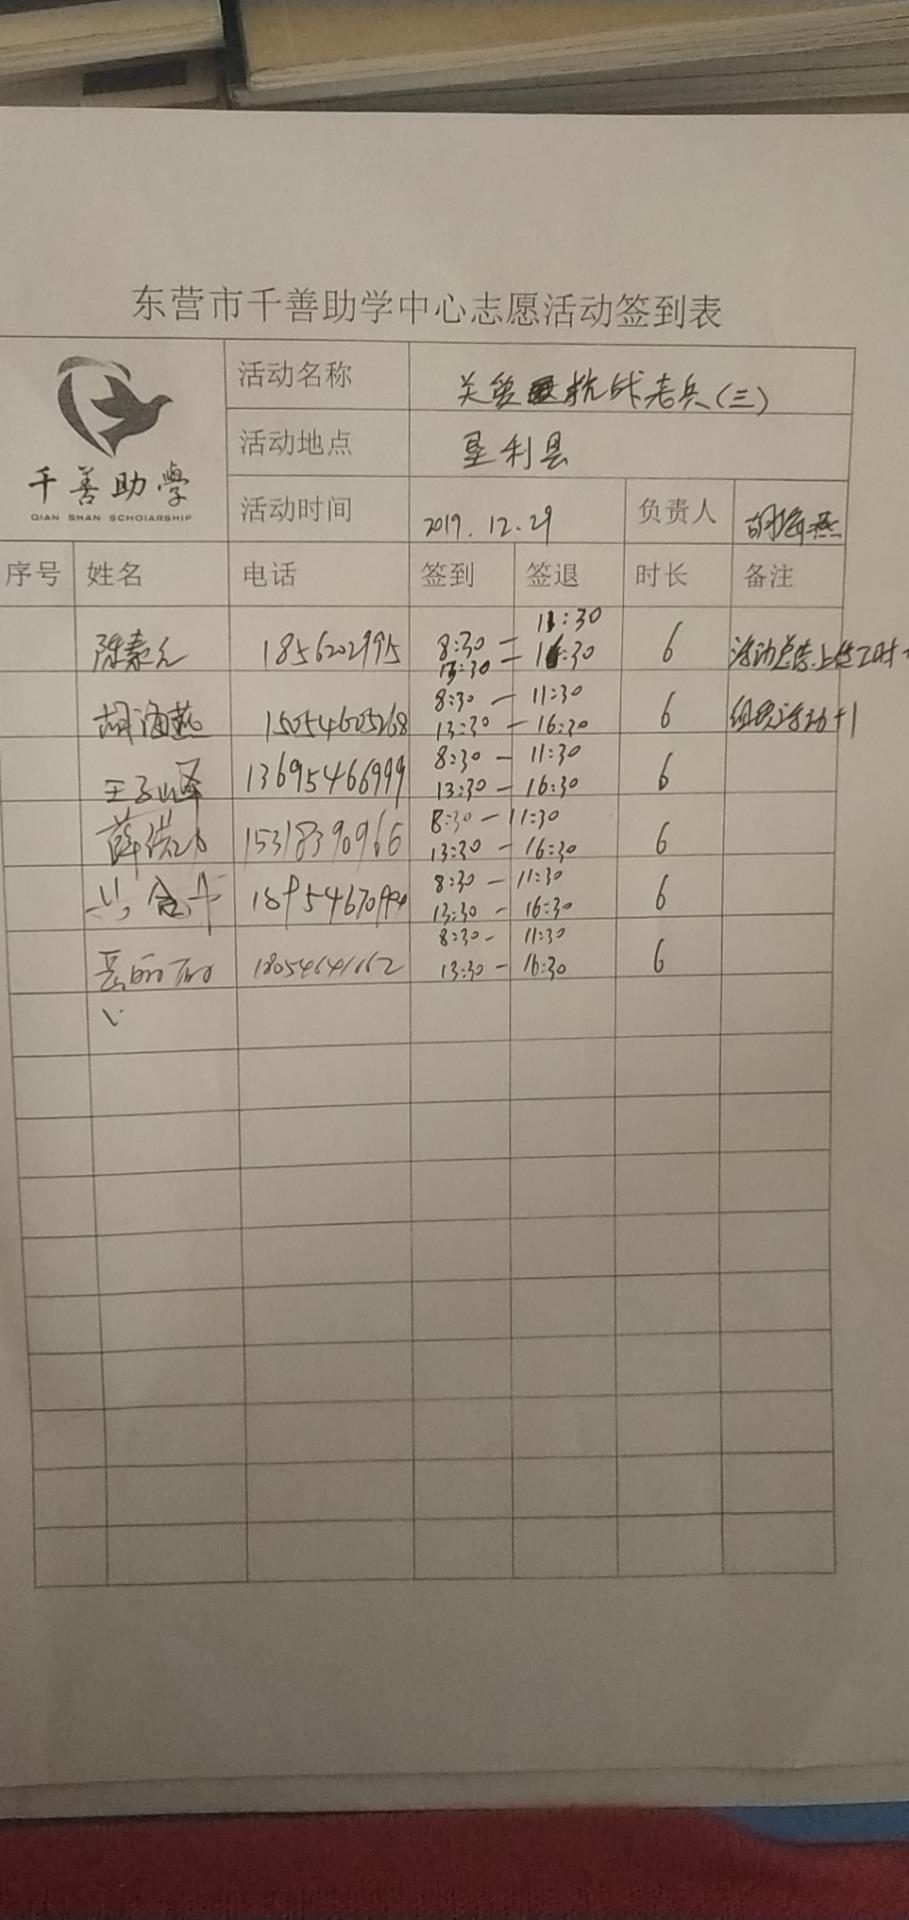 东营市千善助学中心志愿活动签到表
千善助學
QIAN SHAN SCHOlARSHIP
活动名称 关爱抗战老兵(三)
活动地点 垦利县
活动时间 2019.12.29 负责人 胡海燕
序号 姓名 电话 签到 签退 时长 备注
185602995 8:30 — 11:30 6
13:30 — 16:30
胡海燕 15054605268 8:30 — 11:30 6 组织活动+1
13:30 — 16:30
13695466999 8:30 — 11:30 6
13:30 — 16:30
薛 15318390966 8:30 — 11:30 6
13:30 — 16:30
8:30 — 11:30 6
13:30 — 16:30
18054641662 8:30 — 11:30 6
13:30 — 16:30